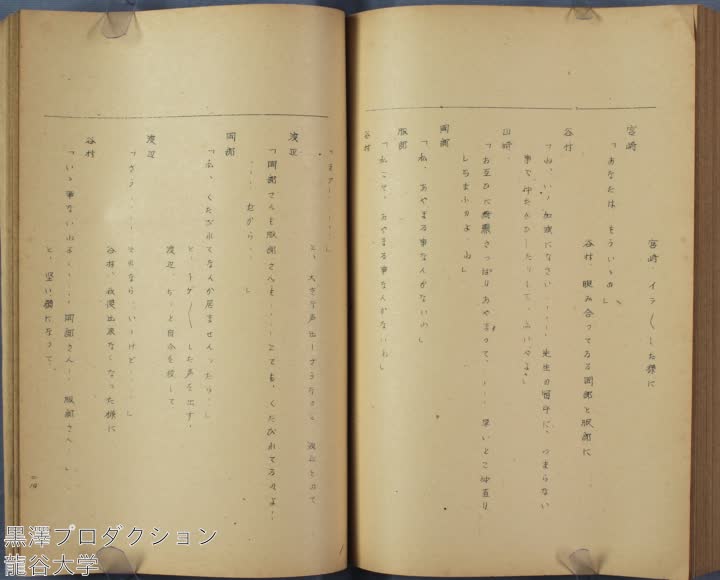 宮崎 イライラした様に
宮崎
「あなたは もういゝの」
谷村、睨み合ってゐる岡部と服部に
谷村
「ね、いゝ加減になさい‥‥‥ 先生の留守に、つまらない
事で仲たがひしたりして、
山崎
「お互ひに綺麗さっぱりあやまって、‥‥ 早いとこ仲直り
しちまふのよ、ね」
岡部
「私、あやまる事なんかないわ」
服部
「私こそ、あやまる事なんかないわ」
谷村
「まァ‥‥‥」
と、大きな声出しさうなのを
渡辺
「岡部さんも服部さんも‥‥‥とても、くたびれてるのよ‥
‥‥ だから‥‥」
岡部
「私、くたびれてなんか居ませんったら‥」
した声を出す、
渡辺、ぢっと自分を殺して
渡辺
「さう‥‥‥ それなら‥いゝけど‥‥‥」
谷村、我慢出来なくなった様に
谷村
「いゝ事ないわよ‥‥‥ 岡部さん‥‥ 服部さん‥」
と、堅い顔になって、
黒澤プロダクション
龍谷大学